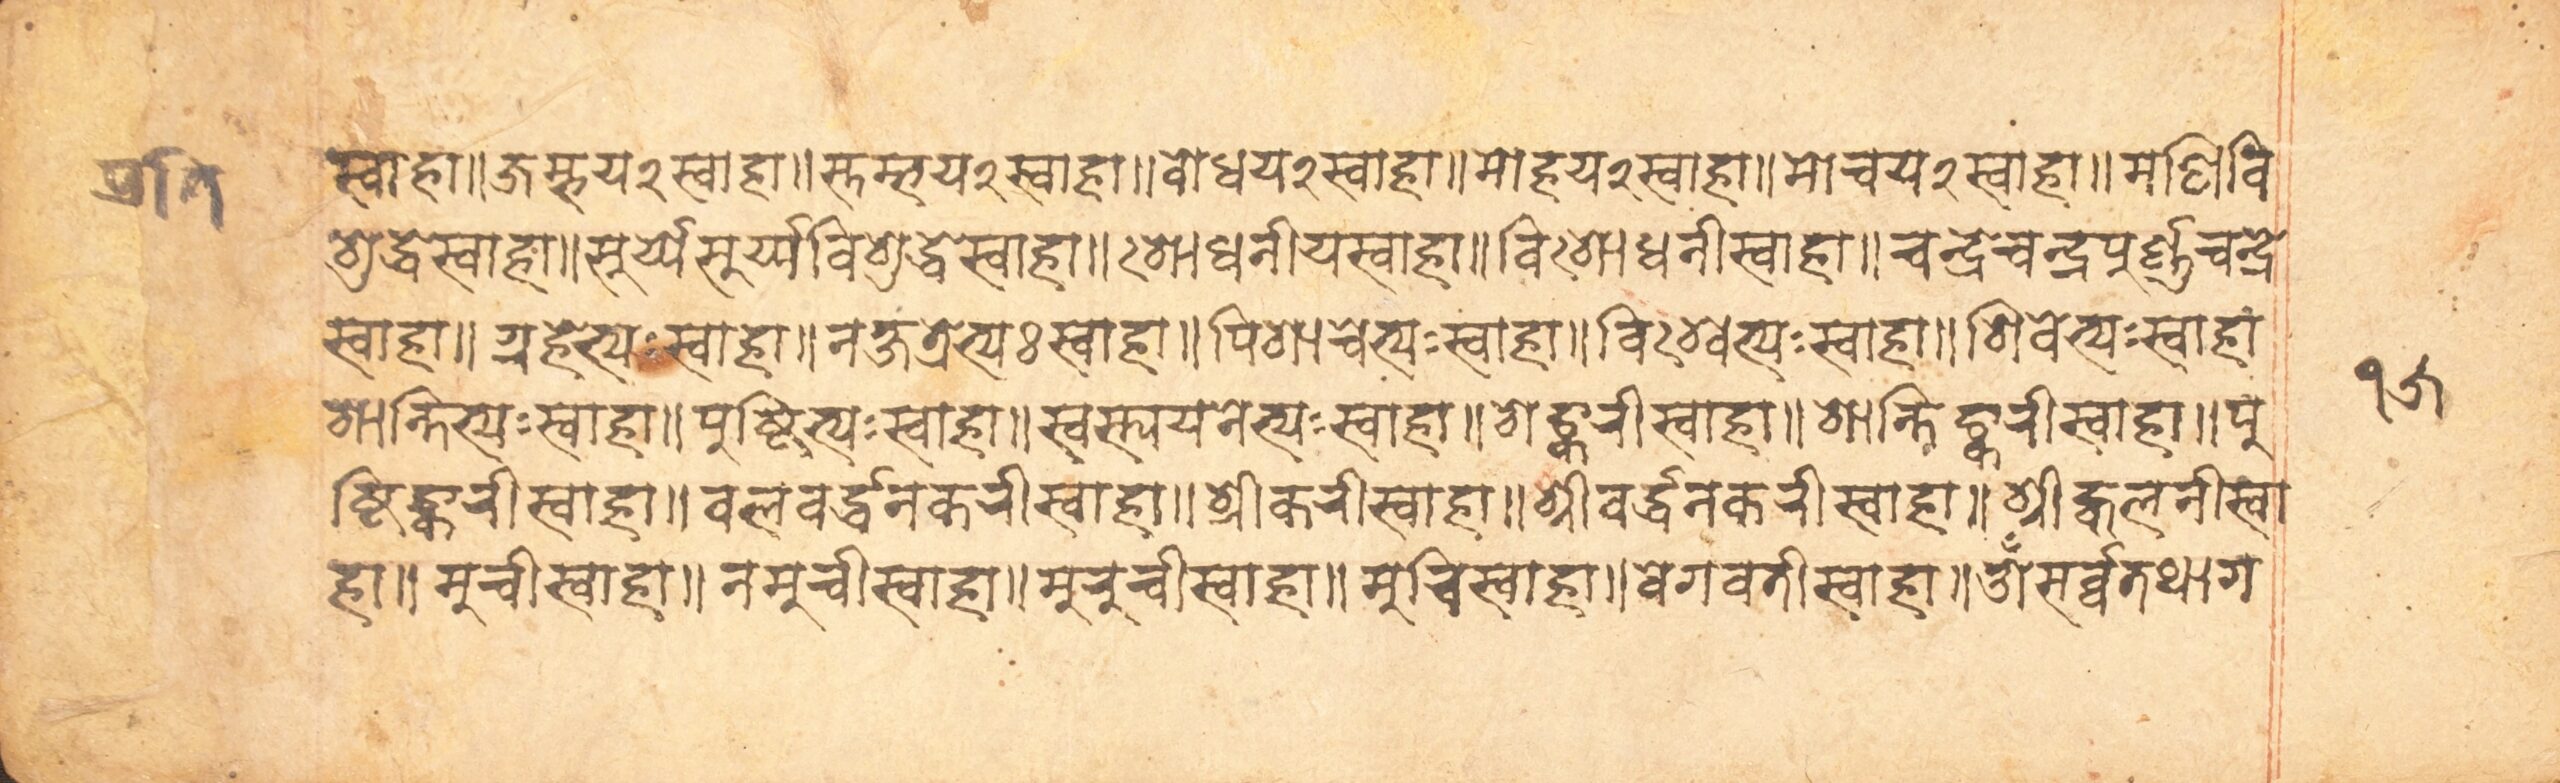 प्रति
स्वाहा॥जम्भय२स्वाहा॥स्तम्भय२स्वाहा॥बोधय२स्वाहा॥मोहय२स्वाहा॥मोचय२स्वाहा॥मणिवि
शुद्धेस्वाहा॥सुर्य्येसुर्य्यविशुद्धेस्वाहा॥शोधनीयस्वाहा॥विशोधनीस्वाहा॥चन्द्रेचन्द्रपुर्ण्णचन्द्रे
स्वाहा॥ग्रहेभ्यःस्वाहा॥नक्षत्रेभ्यःस्वाहा॥पिशाचेभ्यःस्वाहा॥विश्वेभ्यःस्वाहा॥शिवेभ्यःस्वाहा
शान्तिभ्यःस्वाहा॥पुष्टिभ्यःस्वाहा॥स्वस्त्ययनेभ्यःस्वाहा॥शंङ्करीस्वाहा॥शान्तिङ्करीस्वाहा॥पु
ष्टिङ्करीस्वाहा॥बलवर्द्धनकरीस्वाहा॥श्रीकरीस्वाहा॥श्रीवर्द्धनकरीस्वाहा॥श्रीज्वलनीस्वा
हा॥मुचीस्वाहा॥नमुचीस्वाहा॥मुरुचीस्वाहा॥मुचिस्वाहा॥वेगवतीस्वाहा॥ॐसर्व्वतथाग
१५